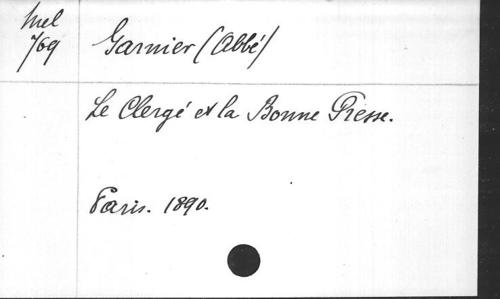 Mel
769
Garnier (Abbé)
Le Clergé et la Bonne Presse.
Paris. 1890.